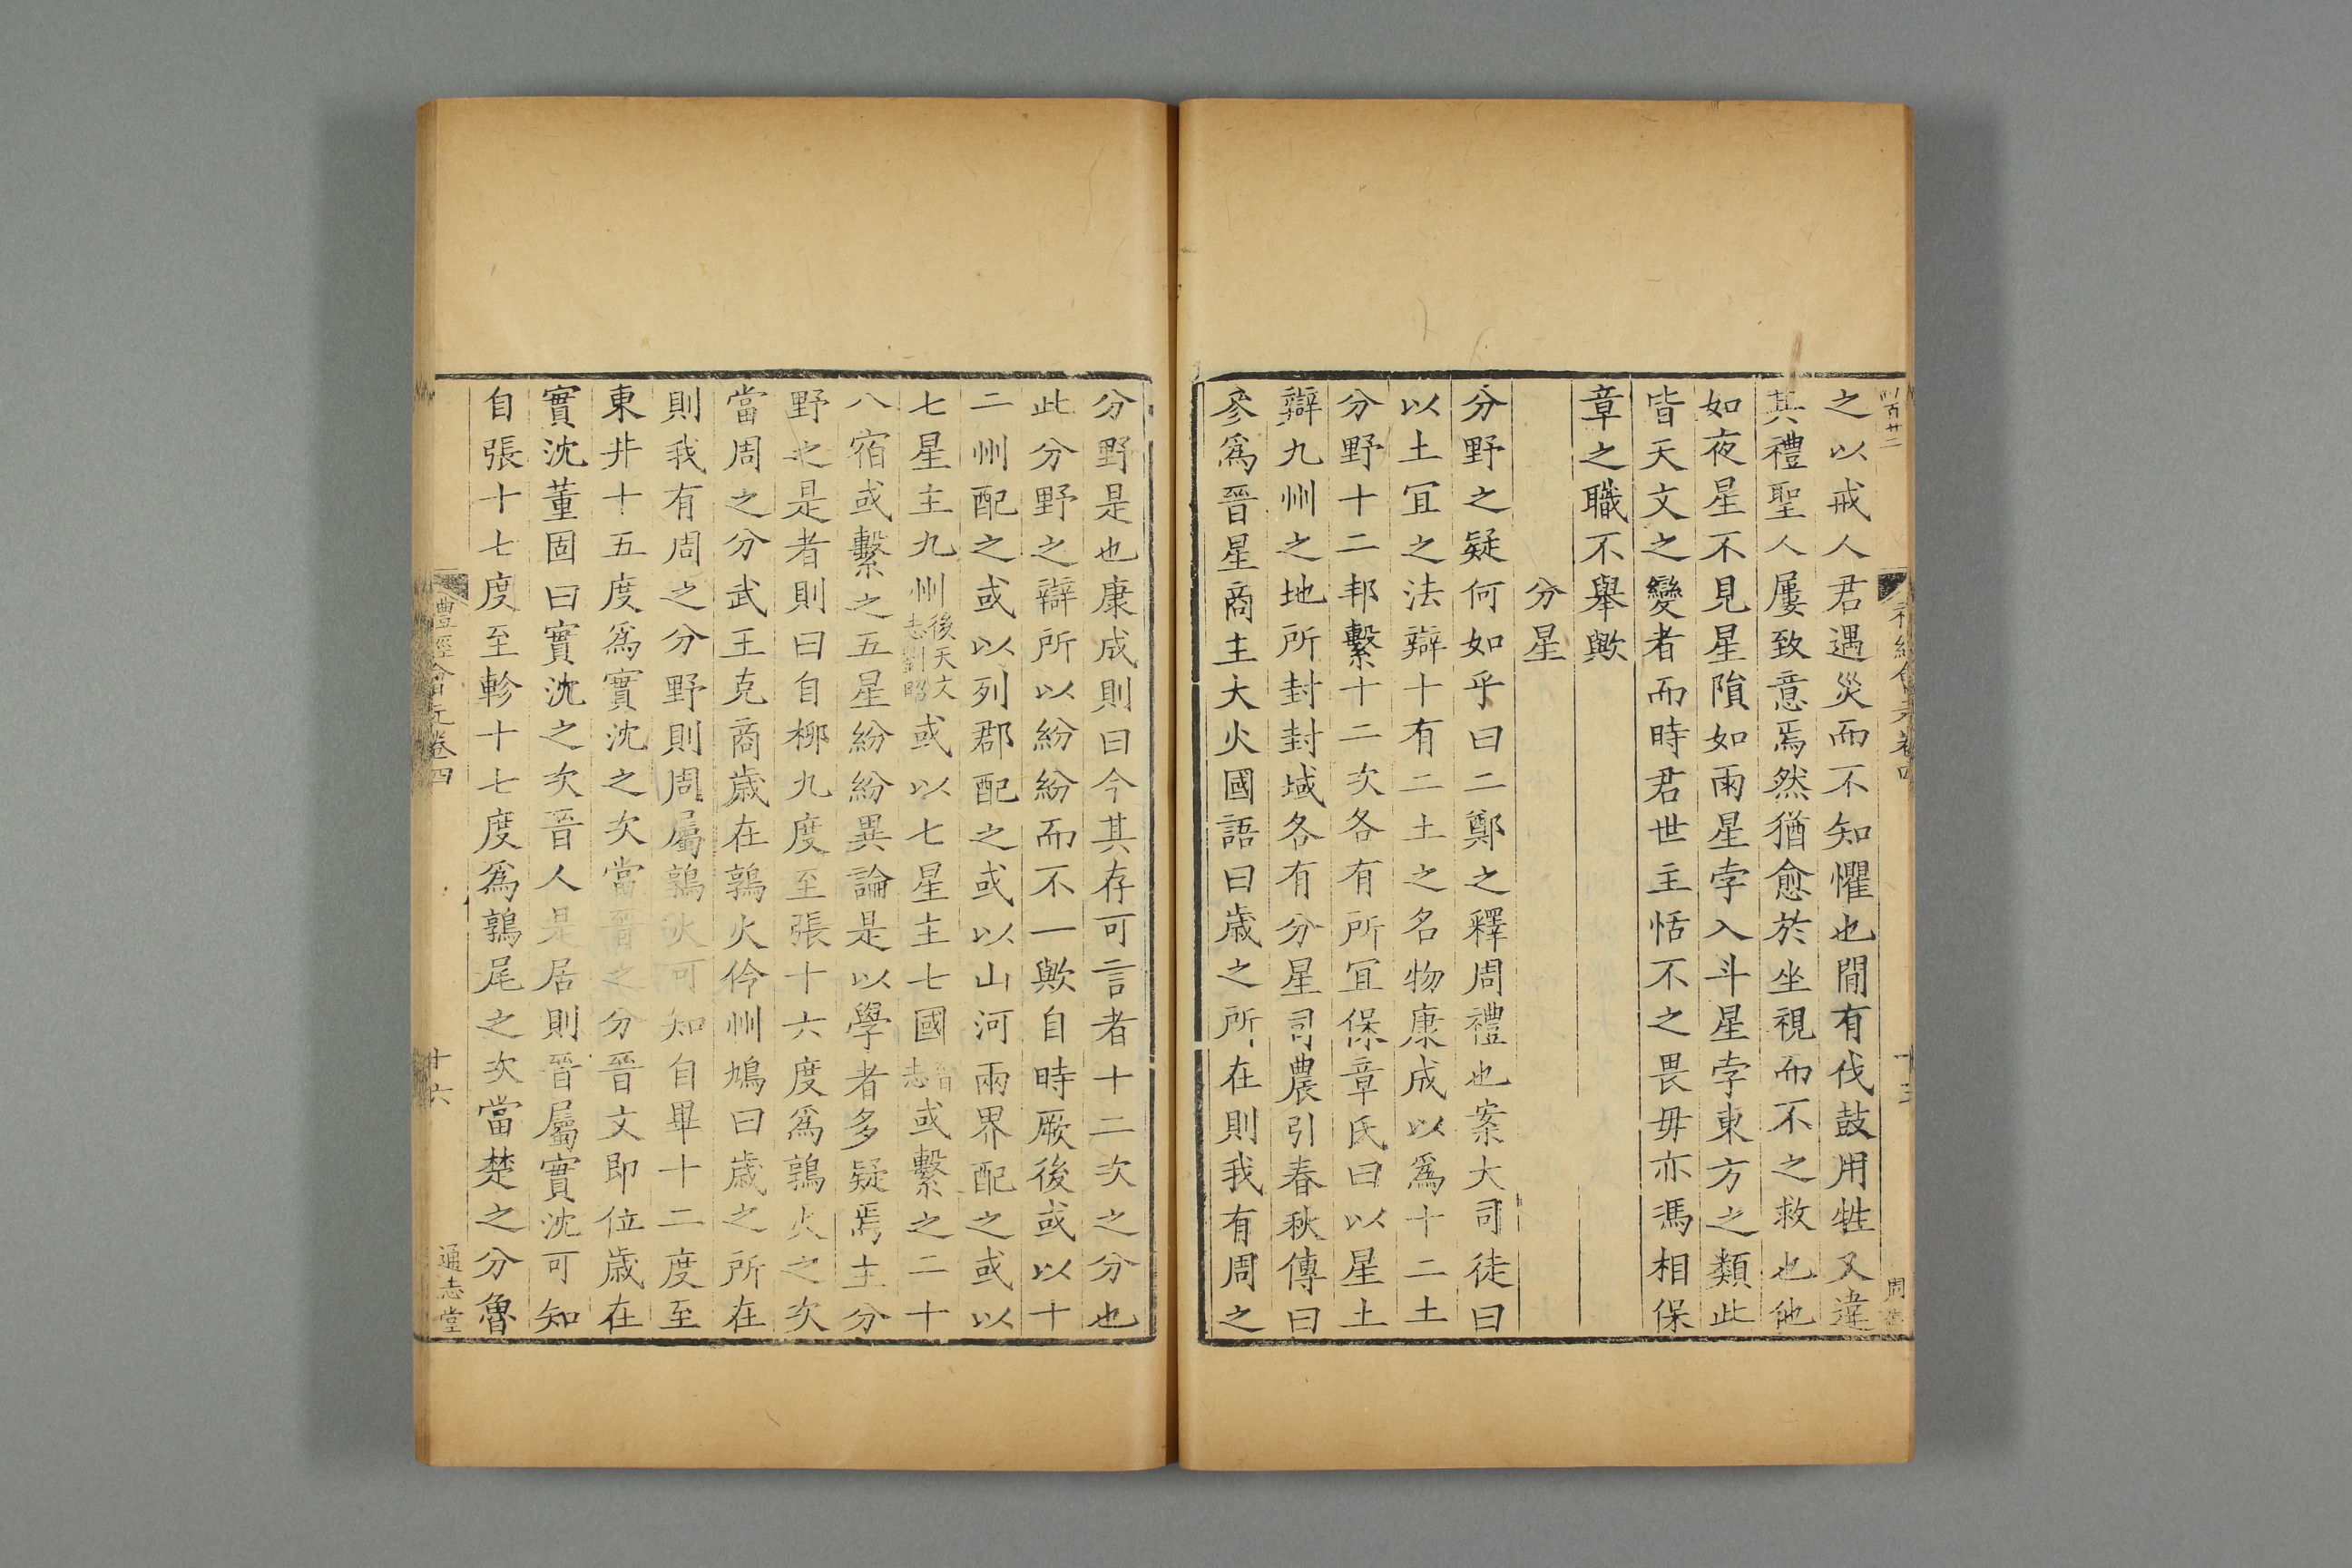 之以戒人君遇災而不知懼也閒有伐鼓用牲又違
其禮聖人屢致意焉然猶愈於坐視而不之救也他
如夜星不見星隕如雨星孛入斗星孛東方之類此
皆天文之變者而時君世主恬不之畏毋亦馮相保
章之職不舉歟
分星
分野之疑何如乎曰二鄭之釋周禮也案大司徒曰
以土宜之法辯十有二土之名物康成以為十二土
分野十二邦繫十二次各有所宜保章氏曰以星土
辯九州之地所封封域各有分星司農引春秋傳曰
參為晉星商主大火國語曰歲之所在則我有周之
分野是也康成則曰今其存可言者十二次之分也
此分野之辯所以紛紛而不一歟自時厥後或以十
二州配之或以列郡配之或以山河兩界配之或以
七星主九州後天文志劉昭或以七星主七國晉志或繫之二十
八宿或繫之五星紛紛異論是以學者多疑焉主分
野之是者則曰自柳九度至張十六度為鶉火之次
當周之分武王克商歲在鶉火伶州鳩曰歲之所在
則我有周之分野則周屬鶉火可知自畢十二度至
東井十五度為實沈之次當晉之分晉文即位歲在
實沈董因曰實沈之次晉人是居則晉屬實沈可知
自張十七度至軫十七度為鶉尾之次當楚之分魯
禮經會元卷四
十六
通志堂